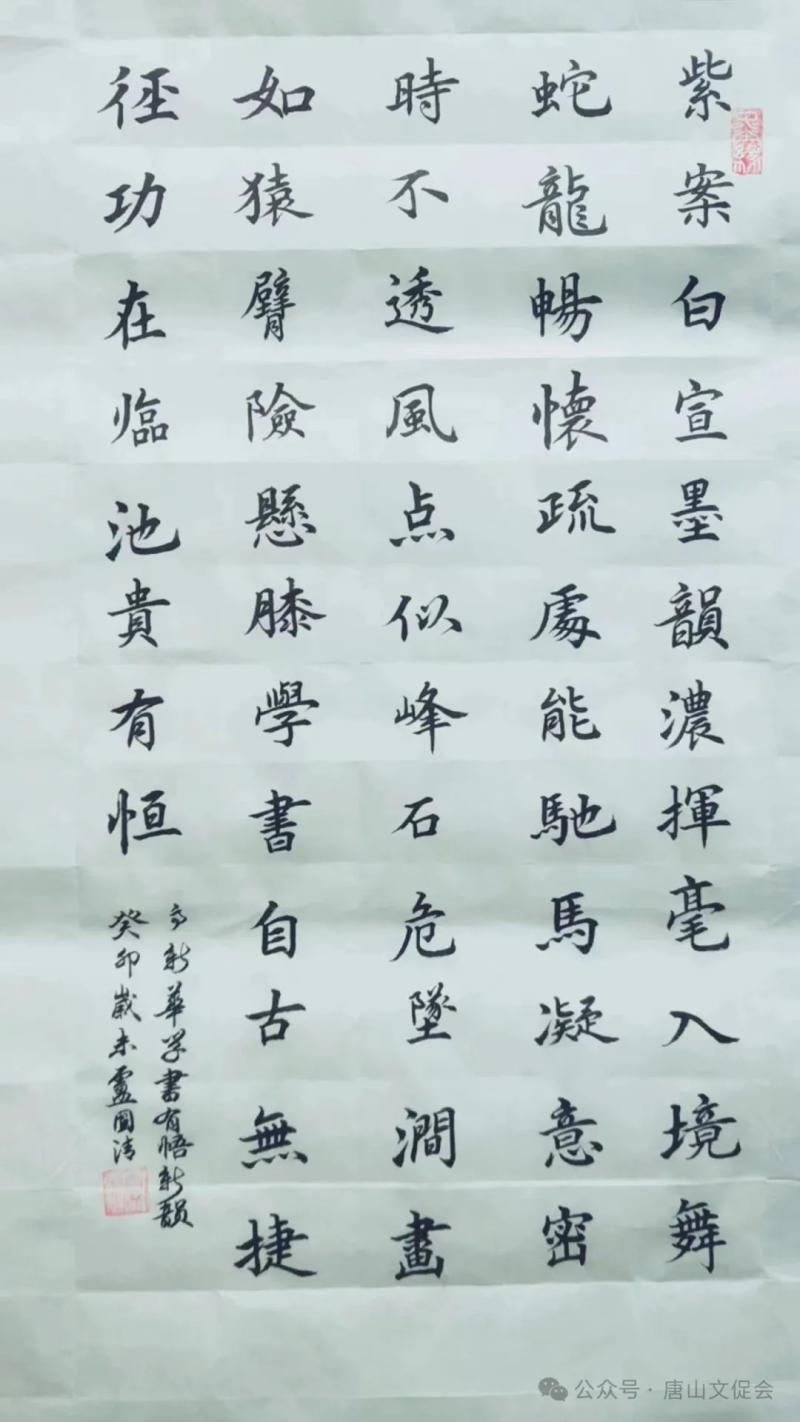 紫案白宣墨韻濃揮毫入境舞
蛇龍暢懷疏處能馳馬凝意密
時不透風点似峰石危墜澗畫
如猿臂險懸膝學書自古無捷
徑功在臨池貴有恒
高新華学書有悟新韻
癸卯歲末盧国清
公众号·唐山文促会